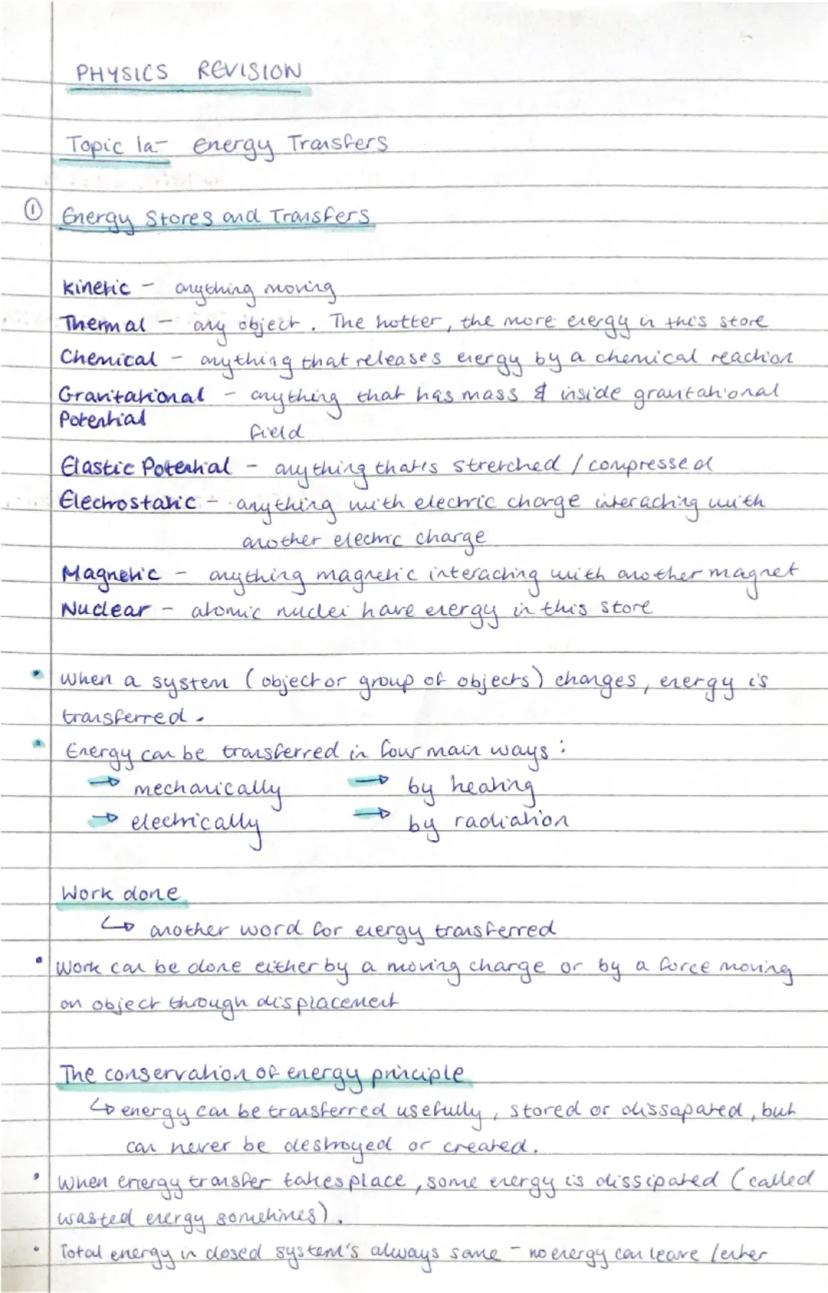 PHYSICS REVISION
Topic 1a- Energy Transfers
① Energy Stores and Transfers
Kinetic - anything moving
Thermal - any object. The hotter, the more energy in this store
Chemical - anything that releases energy by a chemical reaction
Gravitational - anything that has mass & inside gravitational
Potential
field
Elastic Potential - anything that's stretched / compressed
Electrostatic - anything with electric charge interacting with
another electric charge
Magnetic - anything magnetic interacting with another magnet
Nuclear - atomic nuclei have energy in this store
• When a system (object or group of objects) changes, energy is
transferred.
• Energy can be transferred in four main ways:
→ mechanically → by heating
→ electrically → by radiation
Work done
↳ another word for energy transferred
• Work can be done either by a moving charge or by a force moving
an object through displacement
The conservation of energy principle
↳ energy can be transferred usefully, stored or dissapated, but
can never be destroyed or created.
• When energy transfer takes place, some energy is dissipated (called
wasted energy sometimes).
• Total energy in closed system's always same - no energy can leave / enter